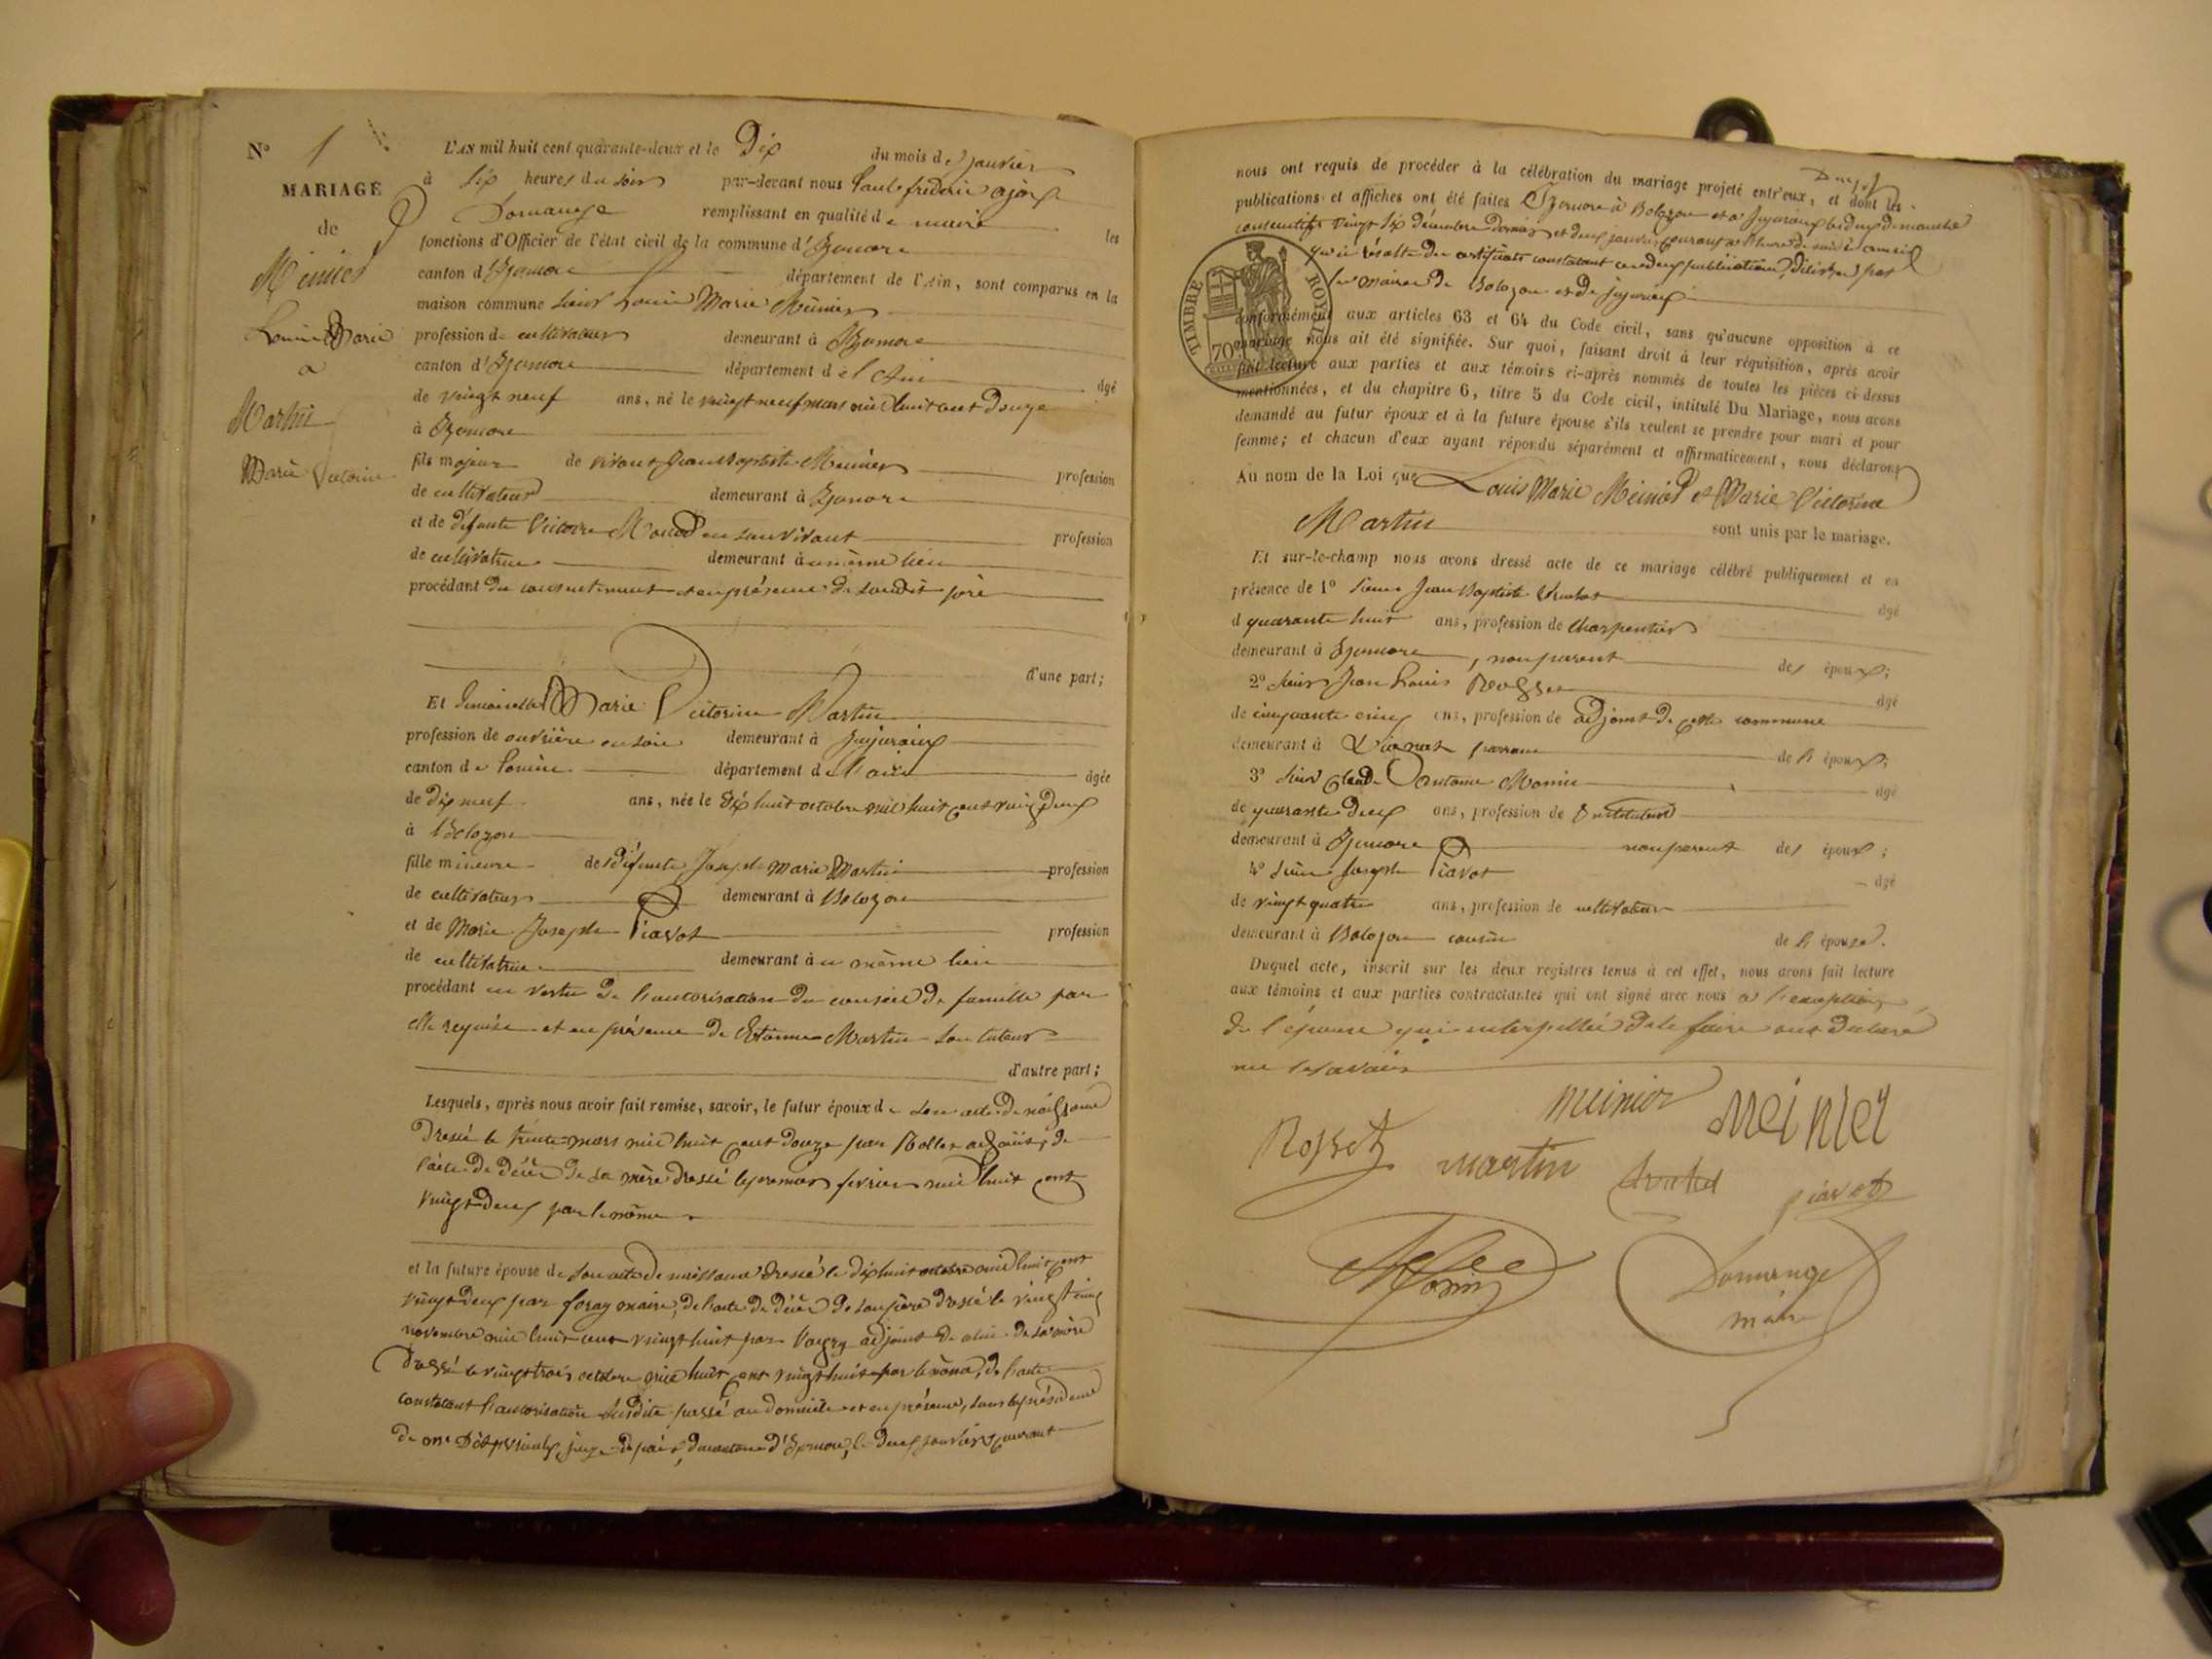 N° 1
MARIAGE
de
Meinier
Louis Marie
à
Martin
Marie Victorine
L'AN mil huit cent quarante-deux et le Dix du mois de janvier
à six heures du soir par-devant nous Paul frédéric
Domange remplissant en qualité de maire les
fonctions d'Officier de l'état civil de la commune d'Izernore
canton d'Izernore département de l'Ain, sont comparus en la
maison commune sieur Louis Marie Meinier
profession de cultivateur demeurant à Izernore
canton d'Izernore département de l'Ain âgé
de vingt neuf ans, né le vingt neuf mars mil huit cent douze
à Izernore
fils majeur de vivant Jean Baptiste Meinier profession
de cultivateur demeurant à Izernore
et de défunte Victoire en son vivant profession
de cultivatrice demeurant au même lieu
procédant du consentement et en présence de son dit père
d'une part;
Et demoiselle Marie Victorine Martin
profession de ouvrière en soie demeurant à Jujurieux
canton de Poncin département de l'ain âgée
de dix neuf ans, née le dix huit octobre mil huit cent vingt deux
à Bolozon
fille mineure de défunts Joseph Marie Martin profession
de cultivateur demeurant à Bolozon
et de Marie Joseph Piavot profession
de cultivatrice demeurant au même lieu
procédant en vertu de l'autorisation du conseil de famille par
elle requise et en présence de Etienne Martin son tuteur
d'autre part;
Lesquels, après nous avoir fait remise, savoir, le futur époux de son acte de naissance
dressé le trente mars mil huit cent douze par adjoint, de
l'acte de décès de sa mère dressé le premier février mil huit cent
vingt deux par le même
et la future épouse de son acte de naissance dressé le dix huit octobre mil huit cent
vingt deux par foray maire, de l'acte de décès de son père dressé le vingt cinq
novembre mil huit cent vingt huit par adjoint de celui de sa mère
dressé le vingt trois octobre mil huit cent vingt huit par le même, de l'acte
constatant l'autorisation susdite passé au domicile et en présence, sous la présidence
de juge de paix du canton d'Izernore, le deux janvier courant
nous ont requis de procéder à la célébration du mariage projeté entr'eux, et dont les
publications et affiches ont été faites à Izernore à Bolozon et à Jujurieux les deux dimanches
consécutifs vingt six décembre dernier et deux janvier courant à l'heure de midi
qu'il résulte des certificats constatant ces deux publications délivrés par
les maires de Bolozon et de Jujurieux
conformément aux articles 63 et 64 du Code civil, sans qu'aucune opposition à ce
mariage nous ait été signifiée. Sur quoi, faisant droit à leur réquisition, après avoir
fait lecture aux parties et aux témoins ci-après nommés de toutes les pièces ci-dessus
mentionnées, et du chapitre 6, titre 5 du Code civil, intitulé Du Mariage, nous avons
demandé au futur époux et à la future épouse s'ils veulent se prendre pour mari et pour
femme; et chacun d'eux ayant répondu séparément et affirmativement, nous déclarons
TIMBRE ROYAL
70 c
Au nom de la Loi que Louis Marie Meinier et Marie Victorine
Martin sont unis par le mariage.
Et sur-le-champ nous avons dressé acte de ce mariage célébré publiquement et en
présence de 1° sieur Jean Baptiste âgé
d quarante huit ans, profession de charpentier
demeurant à Izernore, non parent des époux;
2° sieur Jean Louis Rosset âgé
de cinquante cinq ans, profession de adjoint de cette commune
demeurant à parrain de l'époux;
3° sieur Claude Antoine Monin âgé
de quarante deux ans, profession de Instituteur
demeurant à Izernore non parent des époux;
4° sieur Joseph Piavot âgé
de vingt quatre ans, profession de cultivateur
demeurant à Bolozon cousin de l'épouse.
Duquel acte, inscrit sur les deux registres tenus à cet effet, nous avons fait lecture
aux témoins et aux parties contractantes qui ont signé avec nous à l'exception
de l'épouse qui interpellée de le faire ont déclaré
ne le savoir
meinier Meinier
Rosset martin piavot
Monin Domange
maire